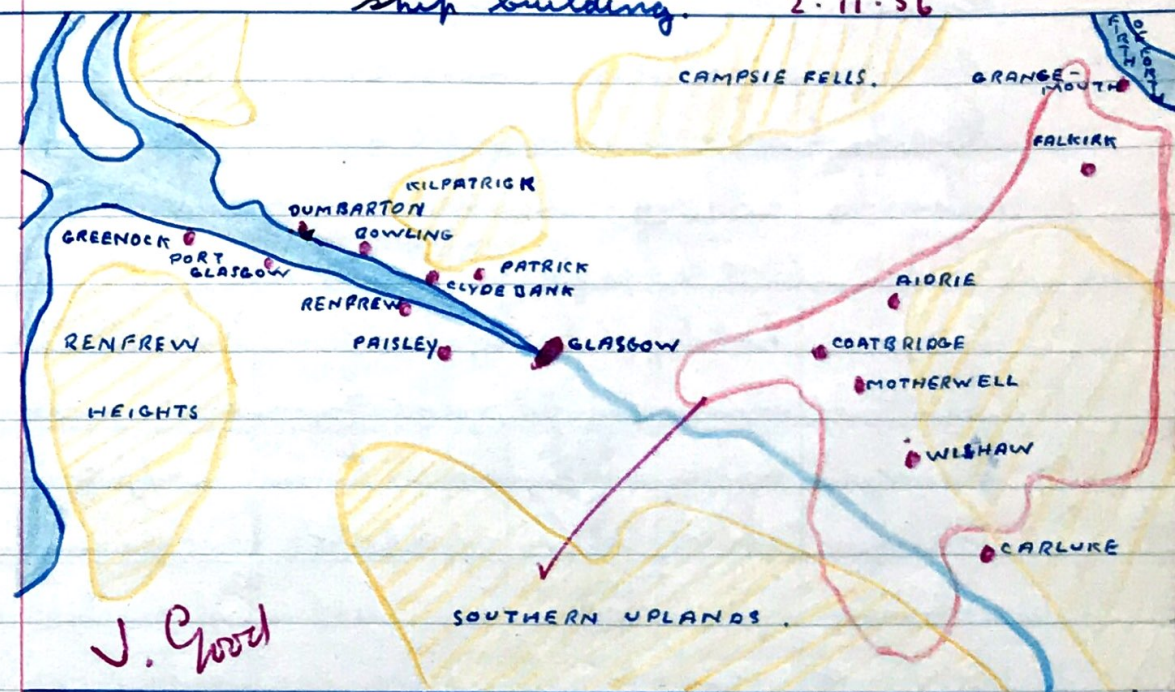 ship building. 2.11.56
FIRTH
OF FORTH
CAMPSIE FELLS.
GRANGE-
MOUTH
FALKIRK
KILPATRICK
DUMBARTON
BOWLING
GREENOCK
PORT
GLASGOW
PATRICK
CLYDE BANK
RENFREW
AIDRIE
RENFREW
HEIGHTS
PAISLEY
GLASGOW
COATBRIDGE
MOTHERWELL
WISHAW
CARLUKE
SOUTHERN UPLANDS.
V. Good